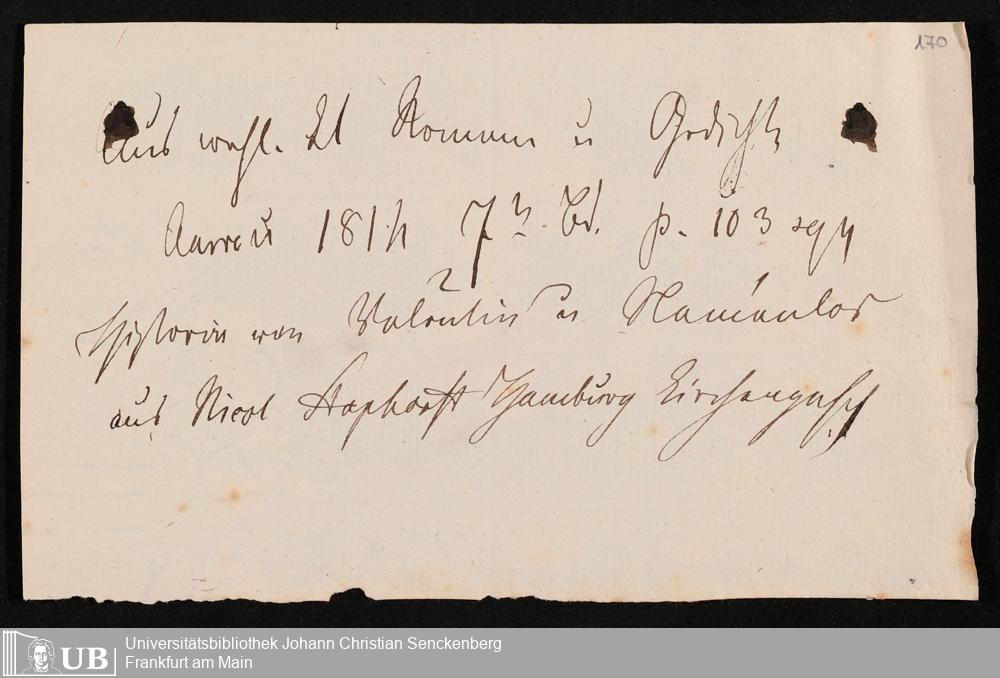 170
Aus wahl. Romane u Gedichte
Aarau 1814 7r Bd. p. 103 sqq
Historie von Valentin u Namenlos
aus Nicol Staphorst Hamburg Kirchengesch
UB
Universitätsbibliothek Johann Christian Senckenberg
Frankfurt am Main